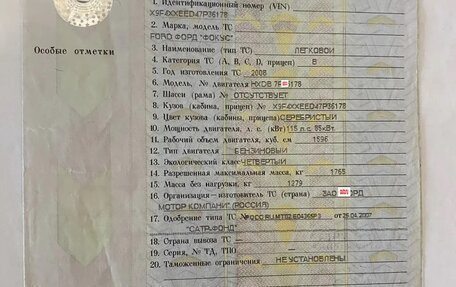 1. Идентификационный номер (VIN)
X9F4XXEED47P36178
2. Марка, модель ТС
FORD ФОРД "ФОКУС"
Особые отметки
3. Наименование (тип ТС) ЛЕГКОВОЙ
4. Категория ТС (А, В, С, D, прицеп) В
5. Год изготовления ТС 2008
6. Модель, № двигателя HXDB 178
7. Шасси (рама) № ОТСУТСТВУЕТ
8. Кузов (кабина, прицеп) № X9F4XXEED47P36178
9. Цвет кузова (кабины, прицепа) СЕРЕБРИСТЫЙ
10. Мощность двигателя, л. с. (кВт) 115 л.с. 85кВт
11. Рабочий объем двигателя, куб. см 1596
12. Тип двигателя БЕНЗИНОВЫЙ
13. Экологический класс ЧЕТВЕРТЫЙ
14. Разрешенная максимальная масса, кг 1765
15. Масса без нагрузки, кг 1279
16. Организация—изготовитель ТС (страна) ЗАО ОРД
МОТОР КОМПАНИ" (РОССИЯ)
17. Одобрение типа ТС № РОСС RU.MT02.E04365P3 от 25.04.2007
"САТР-ФОНД"
18. Страна вывоза ТС
19. Серия, № ТД, ТПО
20. Таможенные ограничения НЕ УСТАНОВЛЕНЫ